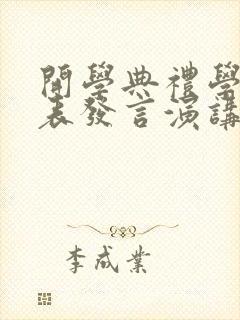 開學典禮學
表發言演講
李成業